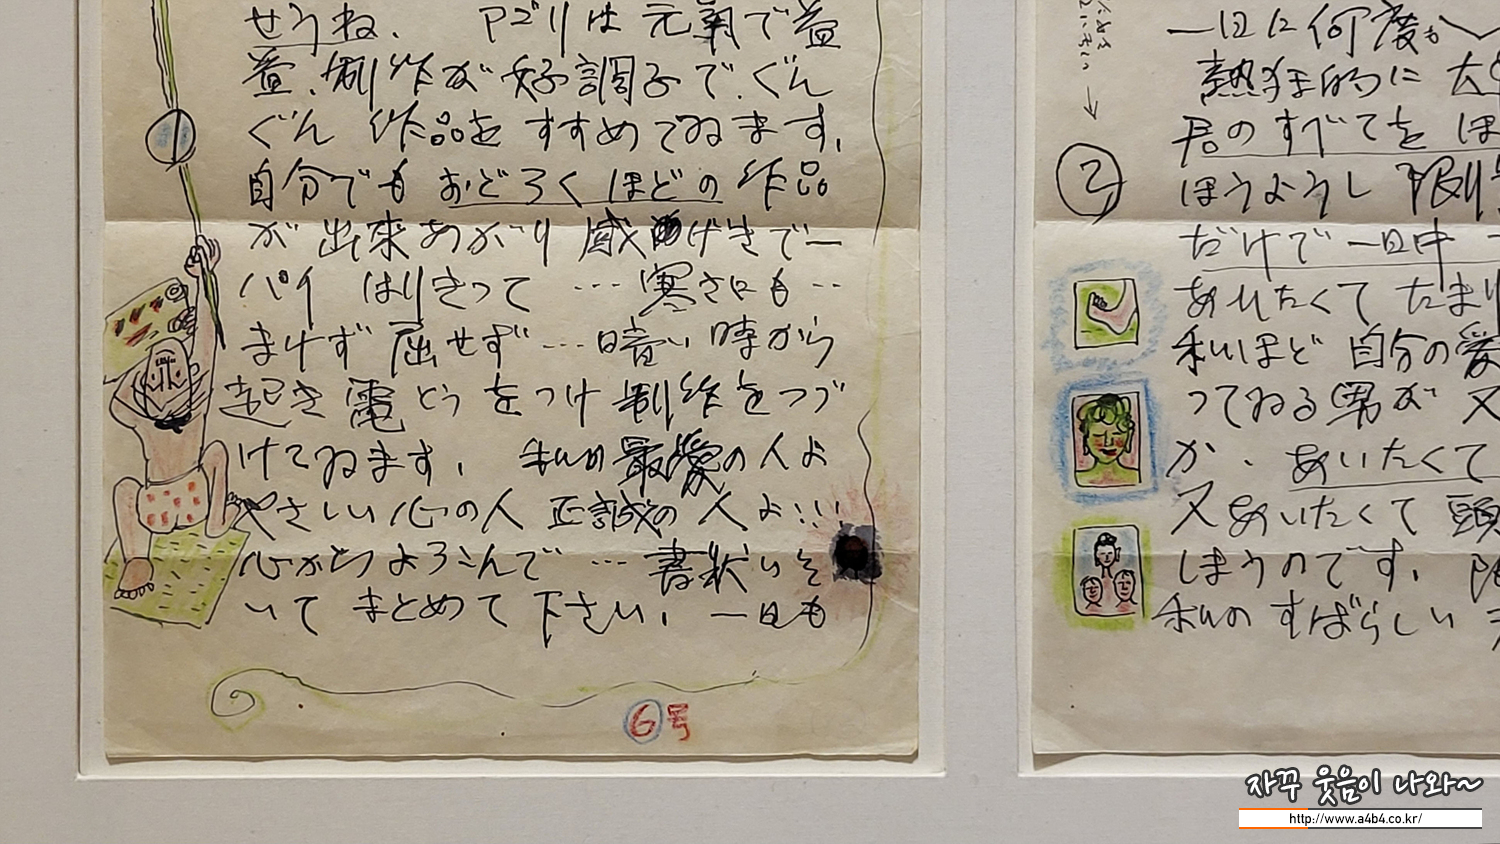 せうね、 アゴリは 元氣で益
益、制作が好調子で、ぐん
ぐん 作品を すすめてゐます。
自分でも おどろくほどの 作品
が 出来あがり 感 げきで一
パイ はりきって … 寒さにも …
まけず 屈せず … 暗い 時から
起き 電とうをつけ 制作をつづ
けてゐます。 私の最愛の人よ
やさしい心の人 正誠の 人よ!!!
心からよろこんで … 書状い そ
いて まとめて 下さい。 一日も
6号
一日に何度も
熱狂的に
君のすべてを ほ
2
ほうようし 限り
だけで 一日中
あいたくて たまり
私ほど 自分の愛
ってゐる男が 又
か、 あいたくて
又あいたくて 頭
しまうのです。 限
私の すばらしい
자꾸 웃음이 나와~
http://www.a4b4.co.kr/